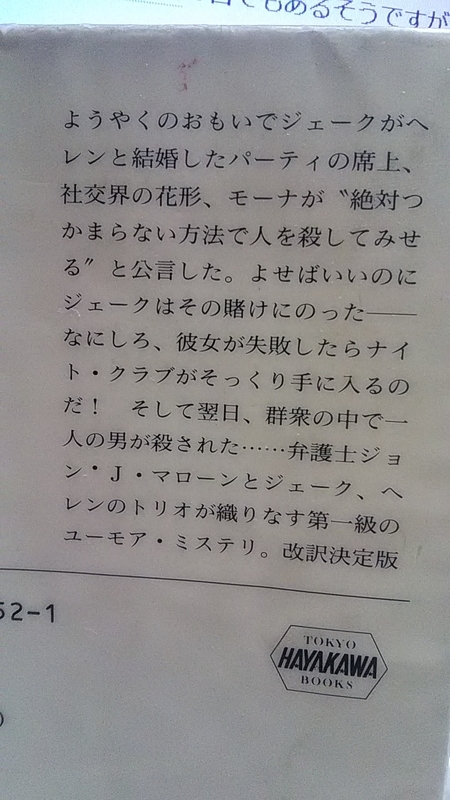 もあるそうですが
ようやくのおもいでジェークがヘ
レンと結婚したパーティの席上、
社交界の花形、モーナが〝絶対つ
かまらない方法で人を殺してみせ
る〞と公言した。よせばいいのに
ジェークはその賭けにのった――
なにしろ、彼女が失敗したらナイ
ト・クラブがそっくり手に入るの
だ！　そして翌日、群衆の中で一
人の男が殺された……弁護士ジョ
ン・J・マローンとジェーク、ヘ
レンのトリオが織りなす第一級の
ユーモア・ミステリ。改訳決定版
52-1
TOKYO
HAYAKAWA
BOOKS
)